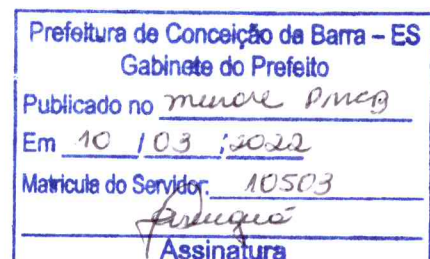 Prefeitura de Conceição da Barra – ES
Gabinete do Prefeito
Publicado no mural PMCB
Em 10 / 03 / 2022
Matricula do Servidor: 10503
Assinatura